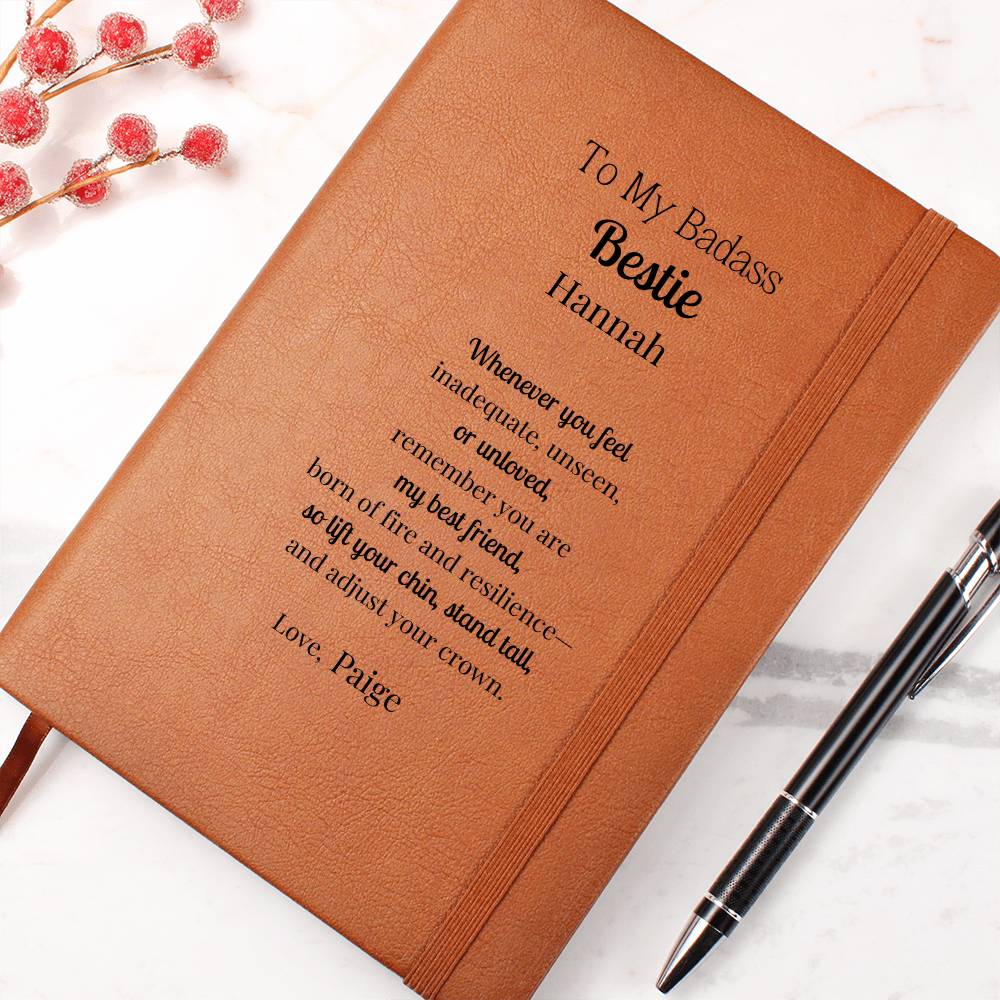 To My Badass
Bestie
Hannah
Whenever you feel
inadequate, unseen,
or unloved,
remember you are
my best friend,
born of fire and resilience—
so lift your chin, stand tall,
and adjust your crown.
Love, Paige